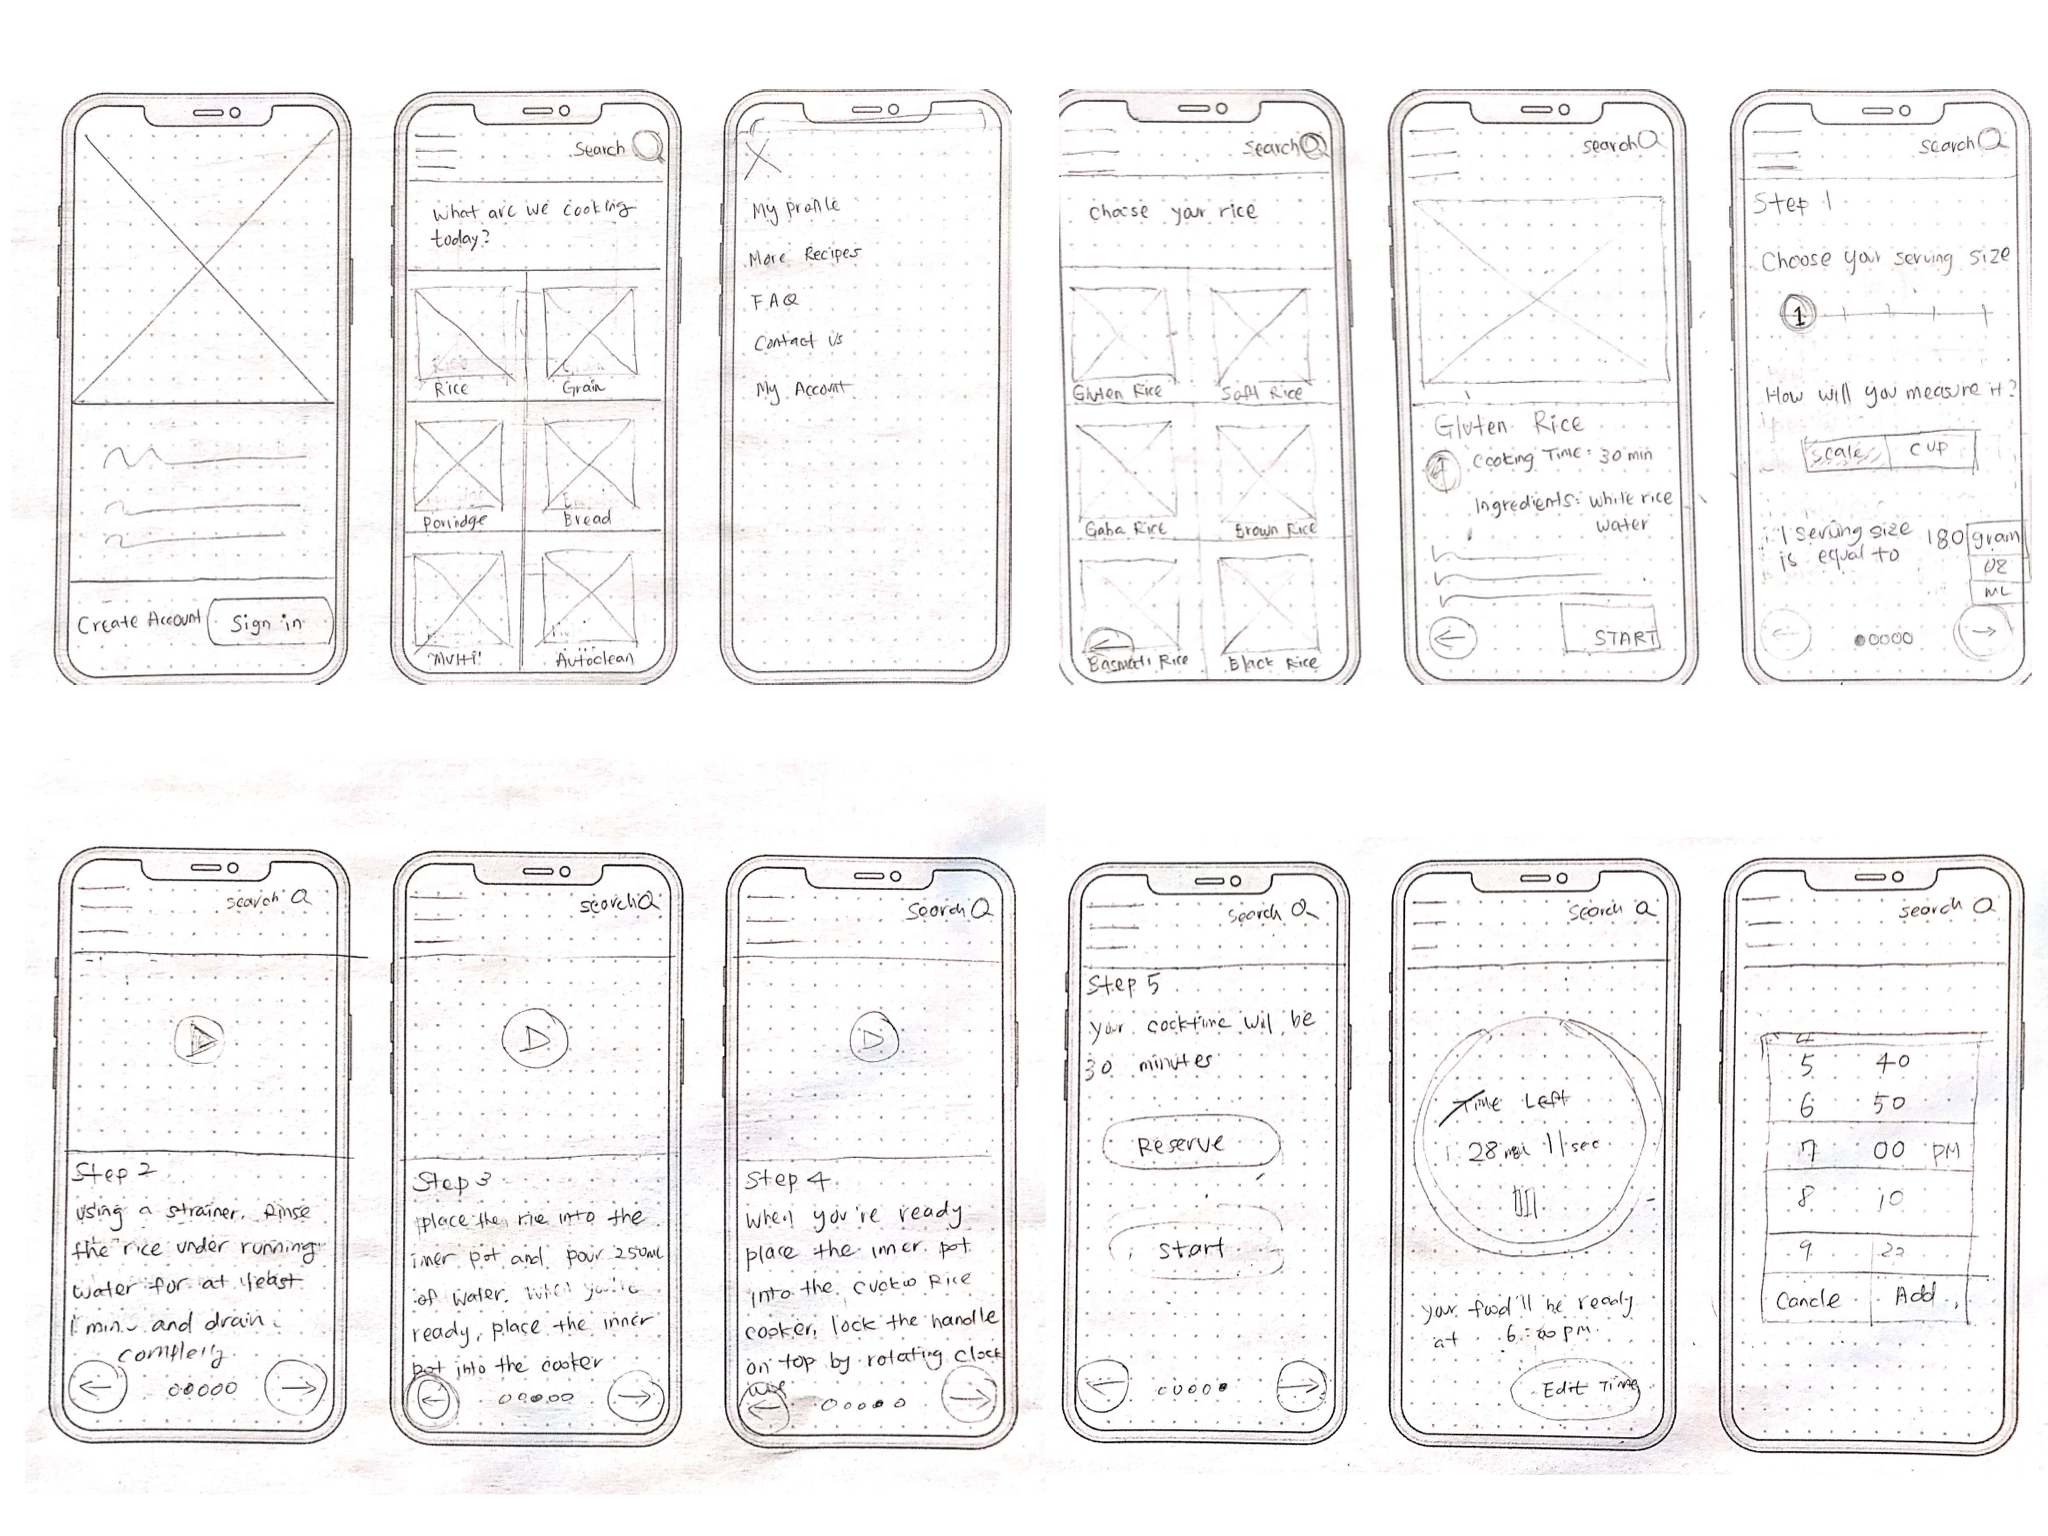 Create Account
Sign in
Search
What are we cooking
today?
Rice
Grain
Porridge
Bread
Multi
Autoclean
X
My profile
More Recipes
FAQ
Contact Us
My Account
Search
Choose your rice
Gluten Rice
Soft Rice
Gaba Rice
Brown Rice
Basmati Rice
Black Rice
Search
Gluten Rice
Cooking Time: 30 min
Ingredients: white rice
water
START
Search
Step 1
Choose your serving size
1
How will you measure it?
scale
CUP
1 serving size
is equal to
180 gram
OZ
ML
search
Step 2
using a strainer, Rinse
the rice under running
water for at least
1 min and drain
search
Step 3
place the rie into the
iner pot and pour 250ml
of water. When you're
ready, place the inner
pot into the cooker
Search
Step 4
When you're ready
place the inner pot
into the cuckoo Rice
cooker, lock the handle
on top by rotating clock
wise
Search
Step 5
your cocktime will be
30 minutes
Reserve
Start
Search
Time Left
28 11 sec
your food'll be ready
at 6:00 pm
Edit Time
Search
4
5 40
6 50
7 00 PM
8 10
9
Cancle
Add